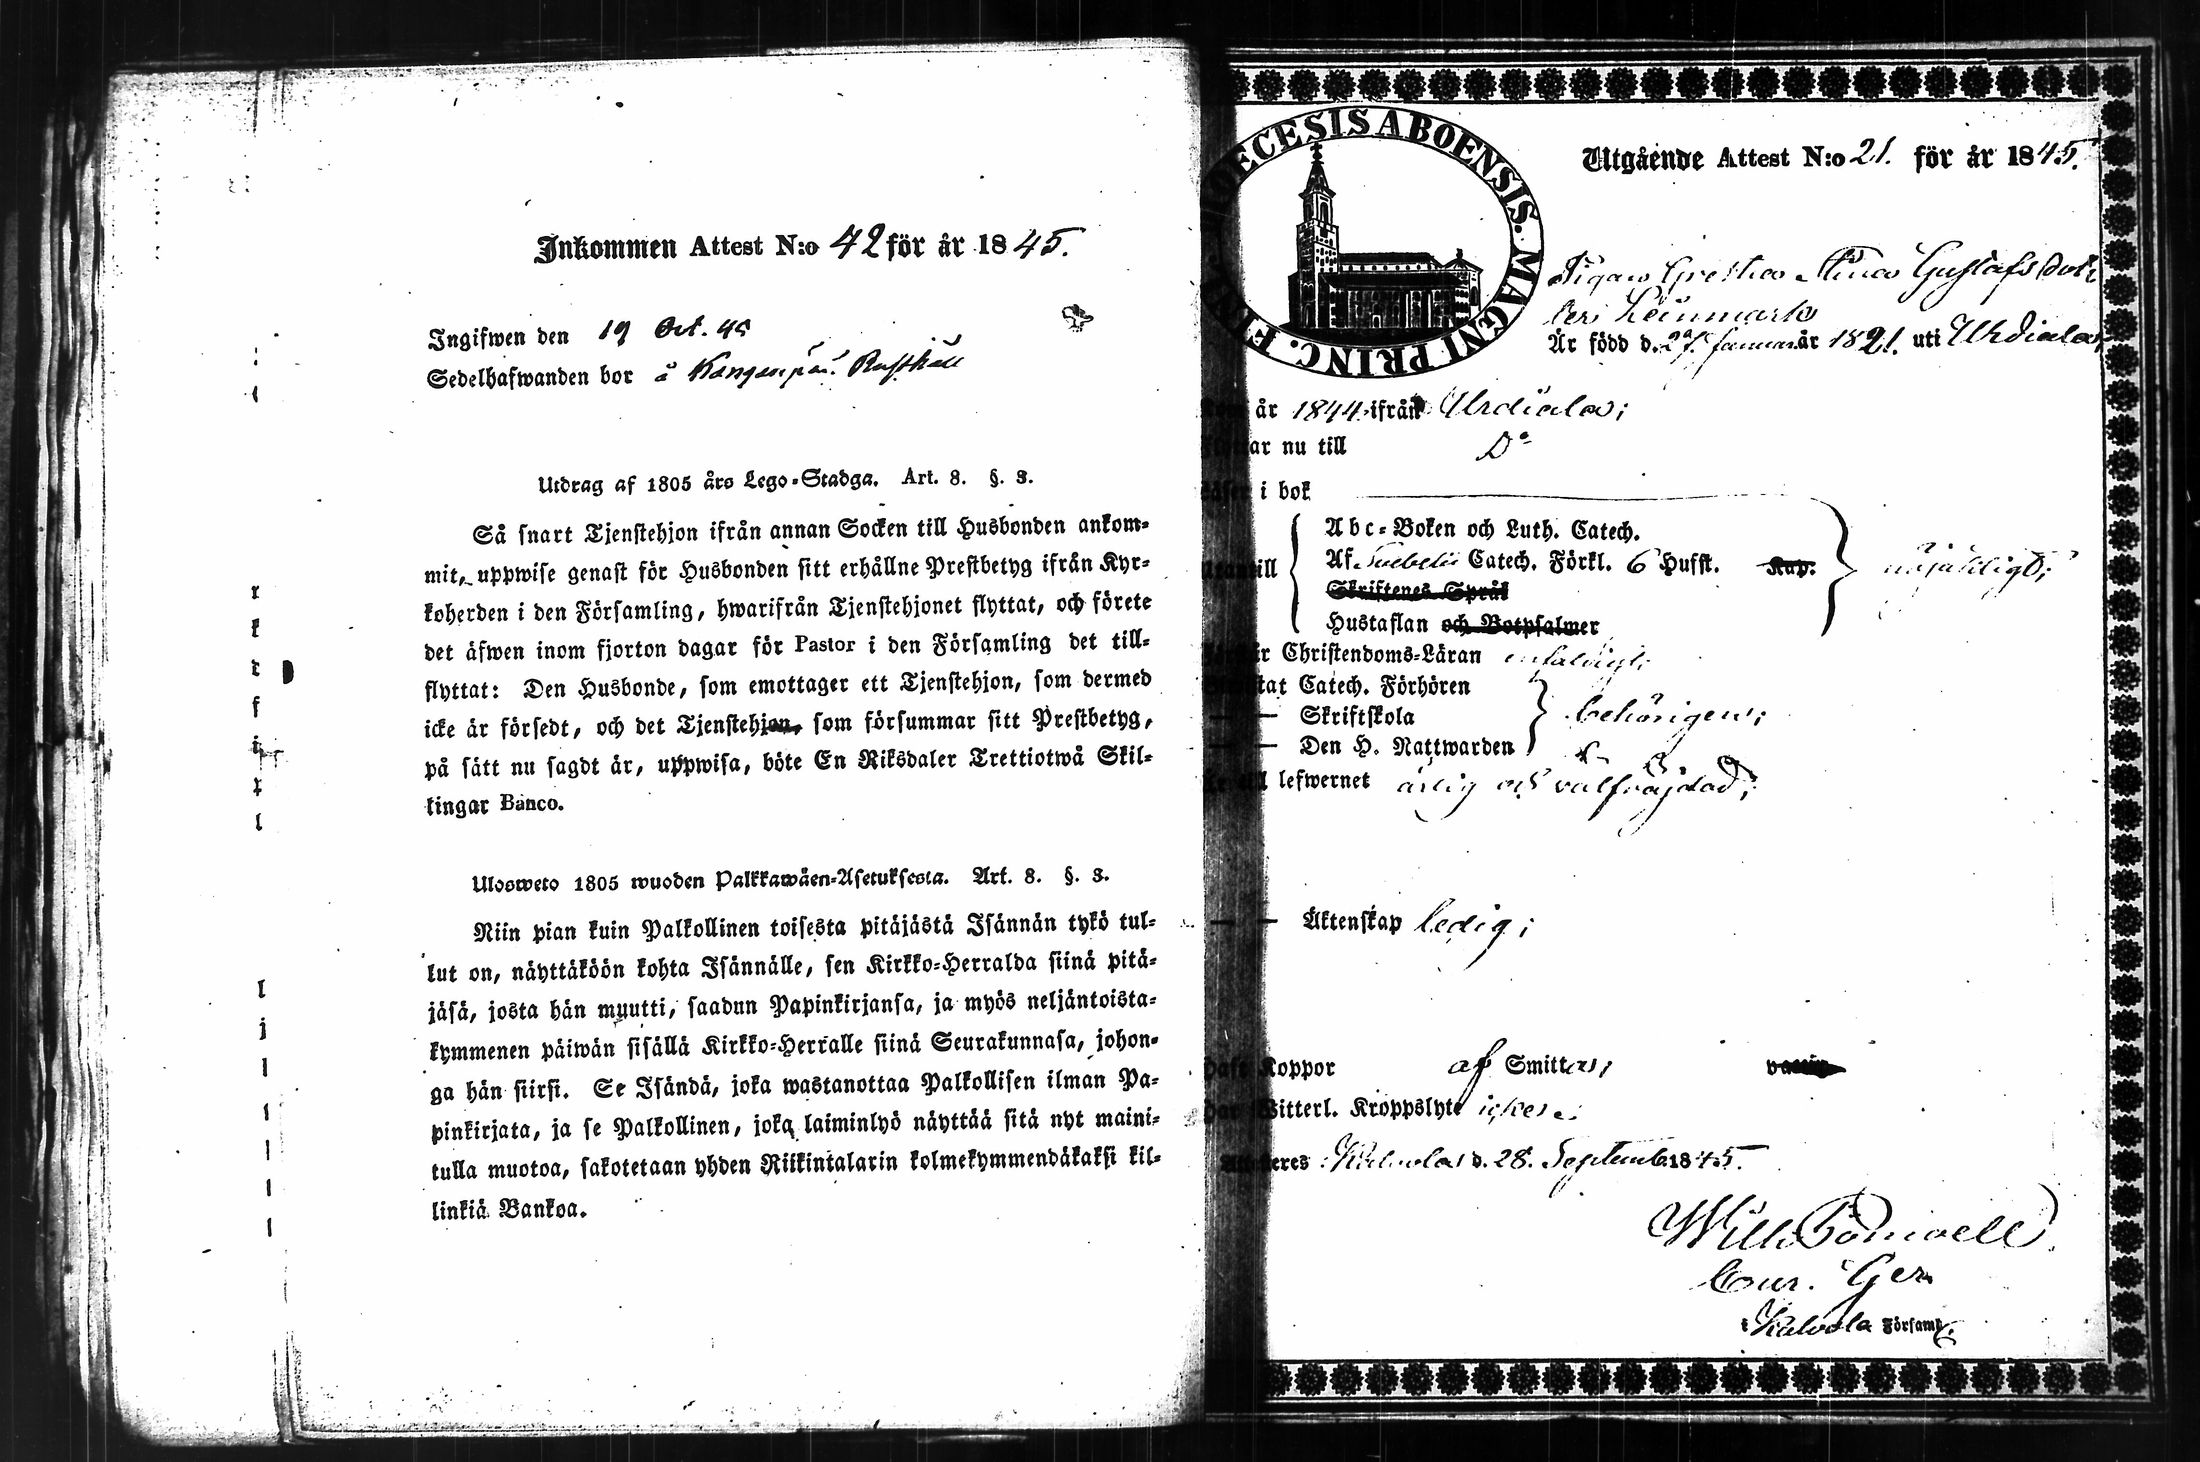 Inkommen Attest N:o 42 för år 1845.
Ingifwen den 19 Oct. 45
Sedelhafwanden bor å
Utdrag af 1805 års Lego-Stadga. Art. 8. §. 3.
Så snart Tjenstehjon ifrån annan Socken till Husbonden ankom-
mit, uppwise genast för Husbonden sitt erhållne Prestbetyg ifrån Kyr-
koherden i den Församling, hwarifrån Tjenstehjonet flyttat, och förete
det äfwen inom fjorton dagar för Pastor i den Församling det till-
flyttat: Den Husbonde, som emottager ett Tjenstehjon, som dermed
icke är försedt, och det Tjenstehjon, som försummar sitt Prestbetyg,
på sätt nu sagdt är, uppwisa, böte En Riksdaler Trettiotwå Skil-
lingar Banco.
Ulosweto 1805 wuoden Palkkawäen-Asetuksesta. Art. 8. §. 3.
Niin pian kuin Palkollinen toisesta pitäjästä Isännän tykö tul-
lut on, näyttäköön kohta Isännälle, sen Kirkko-Herralda siinä pitä-
jäsä, josta hän muutti, saadun Papinkirjansa, ja myös neljäntoista-
kymmenen päiwän sisällä Kirkko-Herralle siinä Seurakunnasa, johon-
ga hän siirsi. Se Isändä, joka wastanottaa Palkollisen ilman Pa-
pinkirjata, ja se Palkollinen, joka laiminlyö näyttää sitä nyt maini-
tulla muotoa, sakotetaan yhden Riikintalarin kolmekymmendäkaksi kil-
linkiä Bankoa.
DIOECESIS ABOENSIS. MAGNI PRINC. FINL.
Utgående Attest N:o 21. för år 1845.
Pigan Greta Stina Gustafs dot
ter Leinmark
Är född d. 27. Januari år 1821. uti Urdiala,
Kom år 1844 ifrån Urdiala;
Flyttar nu till D:o
Läser i bok
Utantill
Abc-Boken och Luth. Catech.
Af Svebelii Catech. Förkl. 6 Hufst. Kap.
Skriftenes Språk
Hustaflan och Botpsalmer
nöjaktigt;
Förstår Christendoms-Läran enfaldigt;
Bewistat Catech. Förhören
— — Skriftskola
— — Den H. Nattwarden
behörigen;
Är till lefwernet ärlig och välfräjdad;
— — Äktenskap ledig;
Haft Koppor af Smittas;
Har Witterl. Kroppslyte icke.
Attesteres Kalvola d. 28. Septemb. 1845.
Cur. Ger.
i Kalvola Församl.